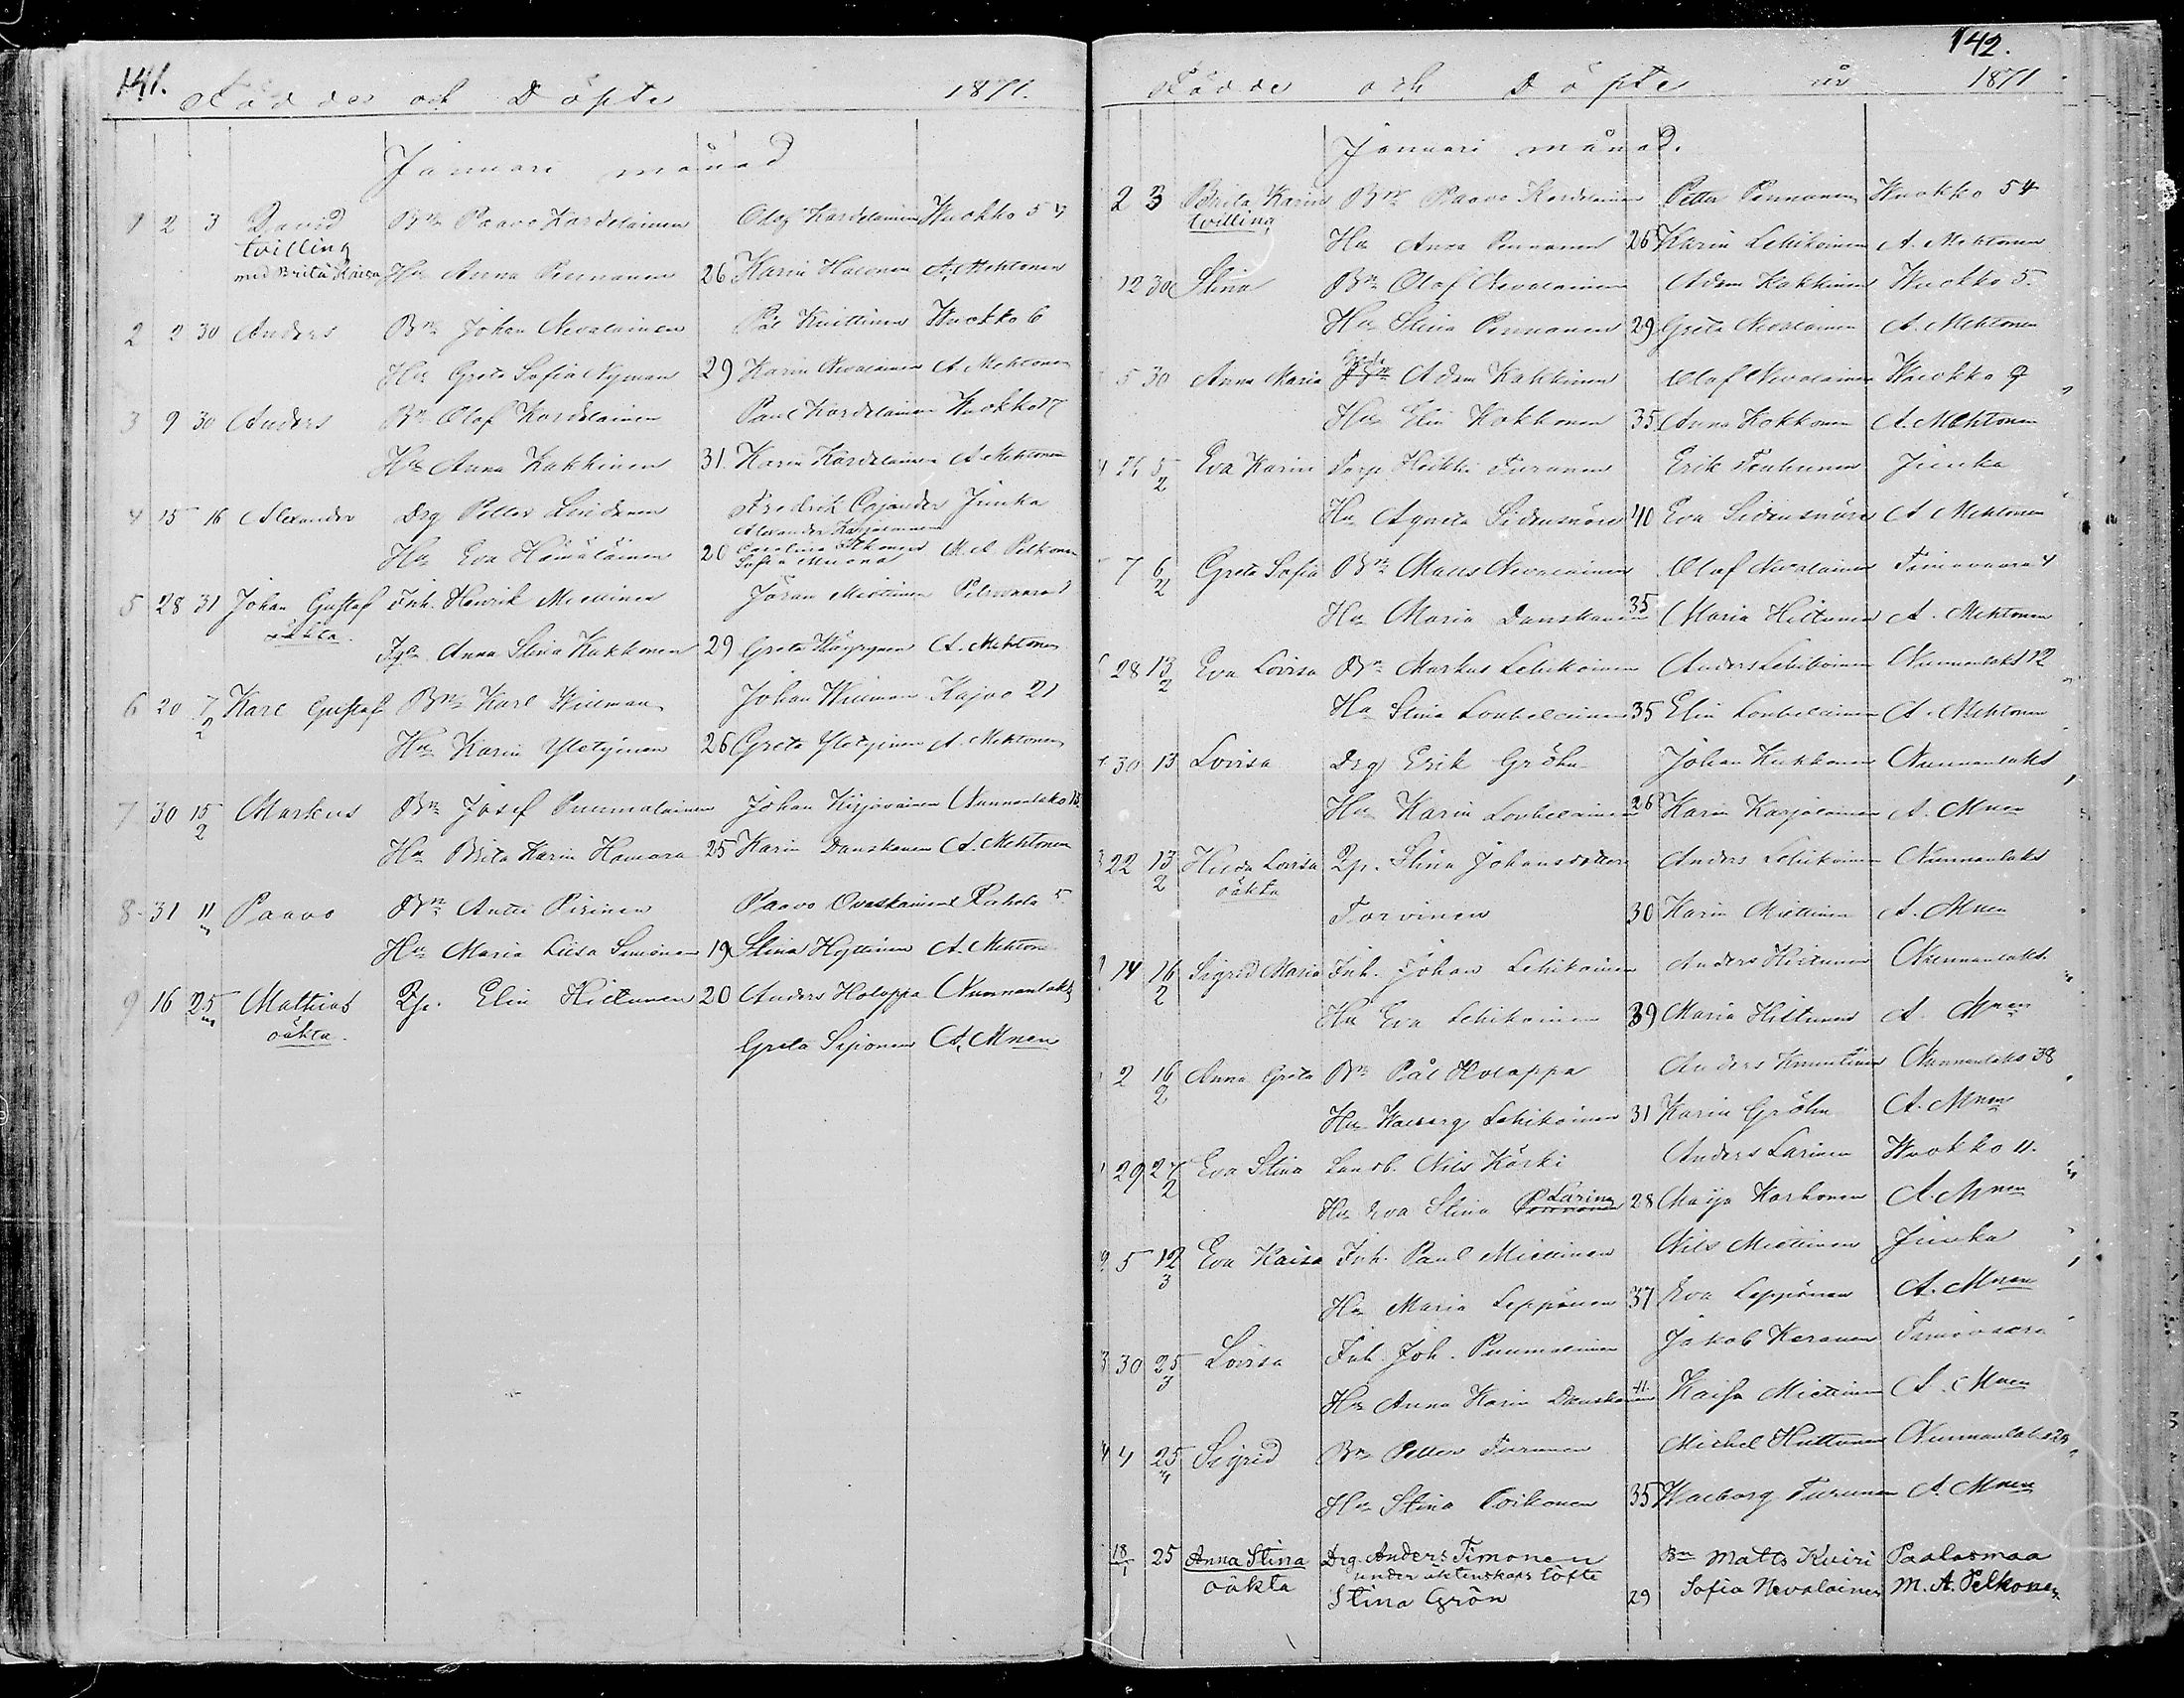 141.
Födde och Döpte 1871.
Januari månad
1 2 3 David Bn Paavo Kärdelainen Olof Kärdelainen Wuokko 54
tvilling
med Brita Kaisa Hu Anna Pennanen 26 Karin Halonen A. Mehtonen
2 2 30 Anders Bn Johan Nevalainen Pål Knittinen Wuokko 6
Hu Greta Sofia Nyman 29 Karin Nevalainen A. Mehtonen
3 9 30 Anders Bn Olof Kärdelainen Paul Kärdelainen Wuokko 17
Hu Anna Kakkinen 31. Karin Kärdelainen A. Mehtonen
4 15 16 Alexander Drg Petter Fredrik Cajander Juuka
Alexander Karjalainen
Hu Eva Hämäläinen 20 Carolina M. A. Pelkonen
Sofia Muona
5 28 31 Johan Gustaf Inh. Henrik Miettinen Jöran Miettinen
oäkta. Anna Stina Kakkonen 29 Greta Häyrynen A. Mehtonen
6 20 7/2 Karl Gustaf Bn Karl Willman Johan Willman Kajoo 21
Hu Karin Yletyinen 26 Greta Yletyinen A. Mehtonen
7 30 15/2 Markus Bn Josef Puumalainen Johan Kirjavainen Nunnanlaks
Hu Brita Karin 25 Karin Danskanen A. Mehtonen
8 31 11 Paavo Bn Antti Pirinen Paavo Ovaskainen Rahola 5
Hu Maria Liisa Simonen 19 Stina A. Mehton
9 16 25 Mathias Pp. Elin Hiltunen 20 Anders Holappa Nunnanlaks
oäkta. Greta Siponen A. Mnen
142.
Födde och Döpte år 1871
Januari månad.
2 3 Brita Karin Bn Paavo Kärdelainen Petter Pennanen Wuokko 54
tvilling
Hu Anna Pennanen 26 Karin Lehikoinen A. Mehtonen
12 30 Stina Bn Olof Nevalainen Adam Kakkinen Wuokko 5.
Hu Stina Pennanen 29 Greta Nevalainen A. Mehtonen
5 30 Anna Maria Adam Kakkinen Olof Nevalainen Wuokko 9
Hu Elin Kokkonen 35 Anna Kokkonen A. Mehtonen
5/2 Eva Karin Torp Heikki Turunen Erik Juuka
Hu Agneta Sidensnöre 40 Eva Sidensnöre A Mehtonen
7 6/2 Greta Sofia Bn Matts Nevalainen Olof Nevalainen Timovaara 4
Hu Maria Danskanen 35 Maria Hiltunen A. Mehtonen
28 13/2 Eva Lovisa Bn Markus Lehikoinen Anders Lehikoinen Nunnanlaks 12
Hu Stina Loukelainen 35 Elin Loukelainen A. Mehtonen
30 13 Lovisa Drg Erik Gröhn Johan Kukkonen Nunnanlaks
Hu Karin Loukelainen 26 Karin Karjalainen A. Mnen
22 13/2 Hilda Lovisa Pp. Stina Johansdotter Anders Lehikoinen Nunnanlaks
oäkta Torvinen 30 Karin Miettinen A. Mnen
14 16/2 Sigrid Maria Inh. Johan Lehikoinen Anders Hiltunen Nunnanlaks.
Hu Eva Lehikoinen 39 Maria Hiltunen A. Mnen
2 16/2 Anna Greta Bn Pål Holappa Anders Knuutinen Nunnanlaks 38
Hu Walborg Lehikoinen 31 Karin Gröhn A. Mnen
29 27/2 Eva Stina Landb. Nils Kärki Anders Larinen Wuokko 11.
Hu Eva Stina Larinen 28 Maija Korhonen A. Mnen
5 12/3 Eva Kaisa Inh. Paul Miettinen Nils Miettinen Juuka
Hu Maria Leppänen 37 Eva Leppänen A. Mnen
30 25/3 Lovisa Inh. Joh. Puumalainen Jakob Keränen Timovaara
Hu Anna Karin Danskanen Kaisa Miettinen A. Mnen
4 25/4 Sigrid Bn Petter Turunen Michel Huttunen Nunnanlaks 25
Hu Stina Oikonen 35 Walborg Turunen A. Mnen
18/1 25 Anna Stina Drg. Anders Timonen Bn Matts Kuiri Paalasmaa
oäkta under äktenskaps löfte
Stina Grön 29 Sofia Nevalainen M. A. Pelkonen